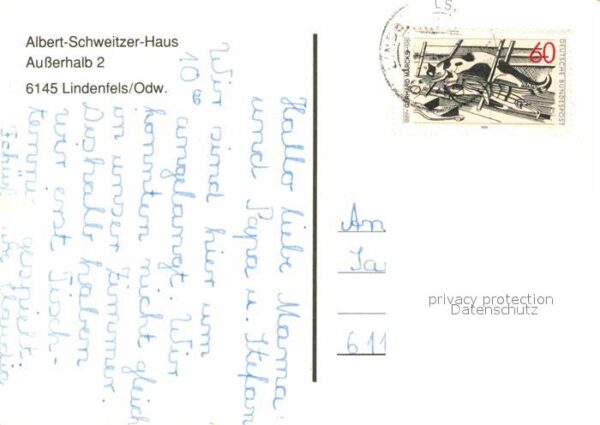 Albert-Schweitzer-Haus
Außerhalb 2
6145 Lindenfels/Odw.
Hallo liebe Mama
und Papa u. Stefan
Wir sind hier um
10⁰⁰ angelangt. Wir
konnten nicht gleich
in unser Zimmer.
Deshalb haben
wir erst Tisch-
tennis gespielt.
60
DEUTSCHE BUNDESPOST
GERHARD MARCKS
An
611
privacy protection
Datenschutz